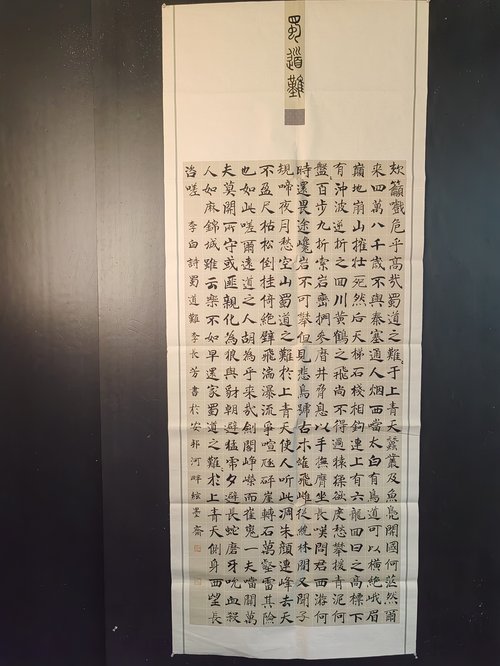 蜀道難
欸籲戲危乎高哉蜀道之難于上青天蠶叢及魚鳧開國何茫然爾
來四萬八千歲不與秦塞通人烟西當太白有鳥道可以橫絕峨眉
巔地崩山摧壯士死然后天梯石棧相鉤連上有六龍回日之高標下
有沖波逆折之回川黃鶴之飛尚不得過猿猱欲度愁攀援青泥何
盤百步九折縈岩巒捫參歷井脅息以手撫膺坐長嘆問君西游何
時還畏途巉岩不可攀但見悲鳥號古木雄飛雌從繞林間又聞子
規啼夜月愁空山蜀道之難於上青天使人聽此凋朱顏連峰去天
不盈尺枯松倒挂倚絕壁飛湍瀑流爭喧豗砯崖轉石萬壑雷其險
也如此嗟爾遠道之人胡為乎來哉劍閣崢嶸而崔嵬一夫當關萬
夫莫開所守或匪親化為狼與豺朝避猛虎夕避長蛇磨牙吮血殺
人如麻錦城雖云樂不如早還家蜀道之難於上青天側身西望長
咨嗟 李白詩蜀道難李長芳書於安邦河畔絃墨齋